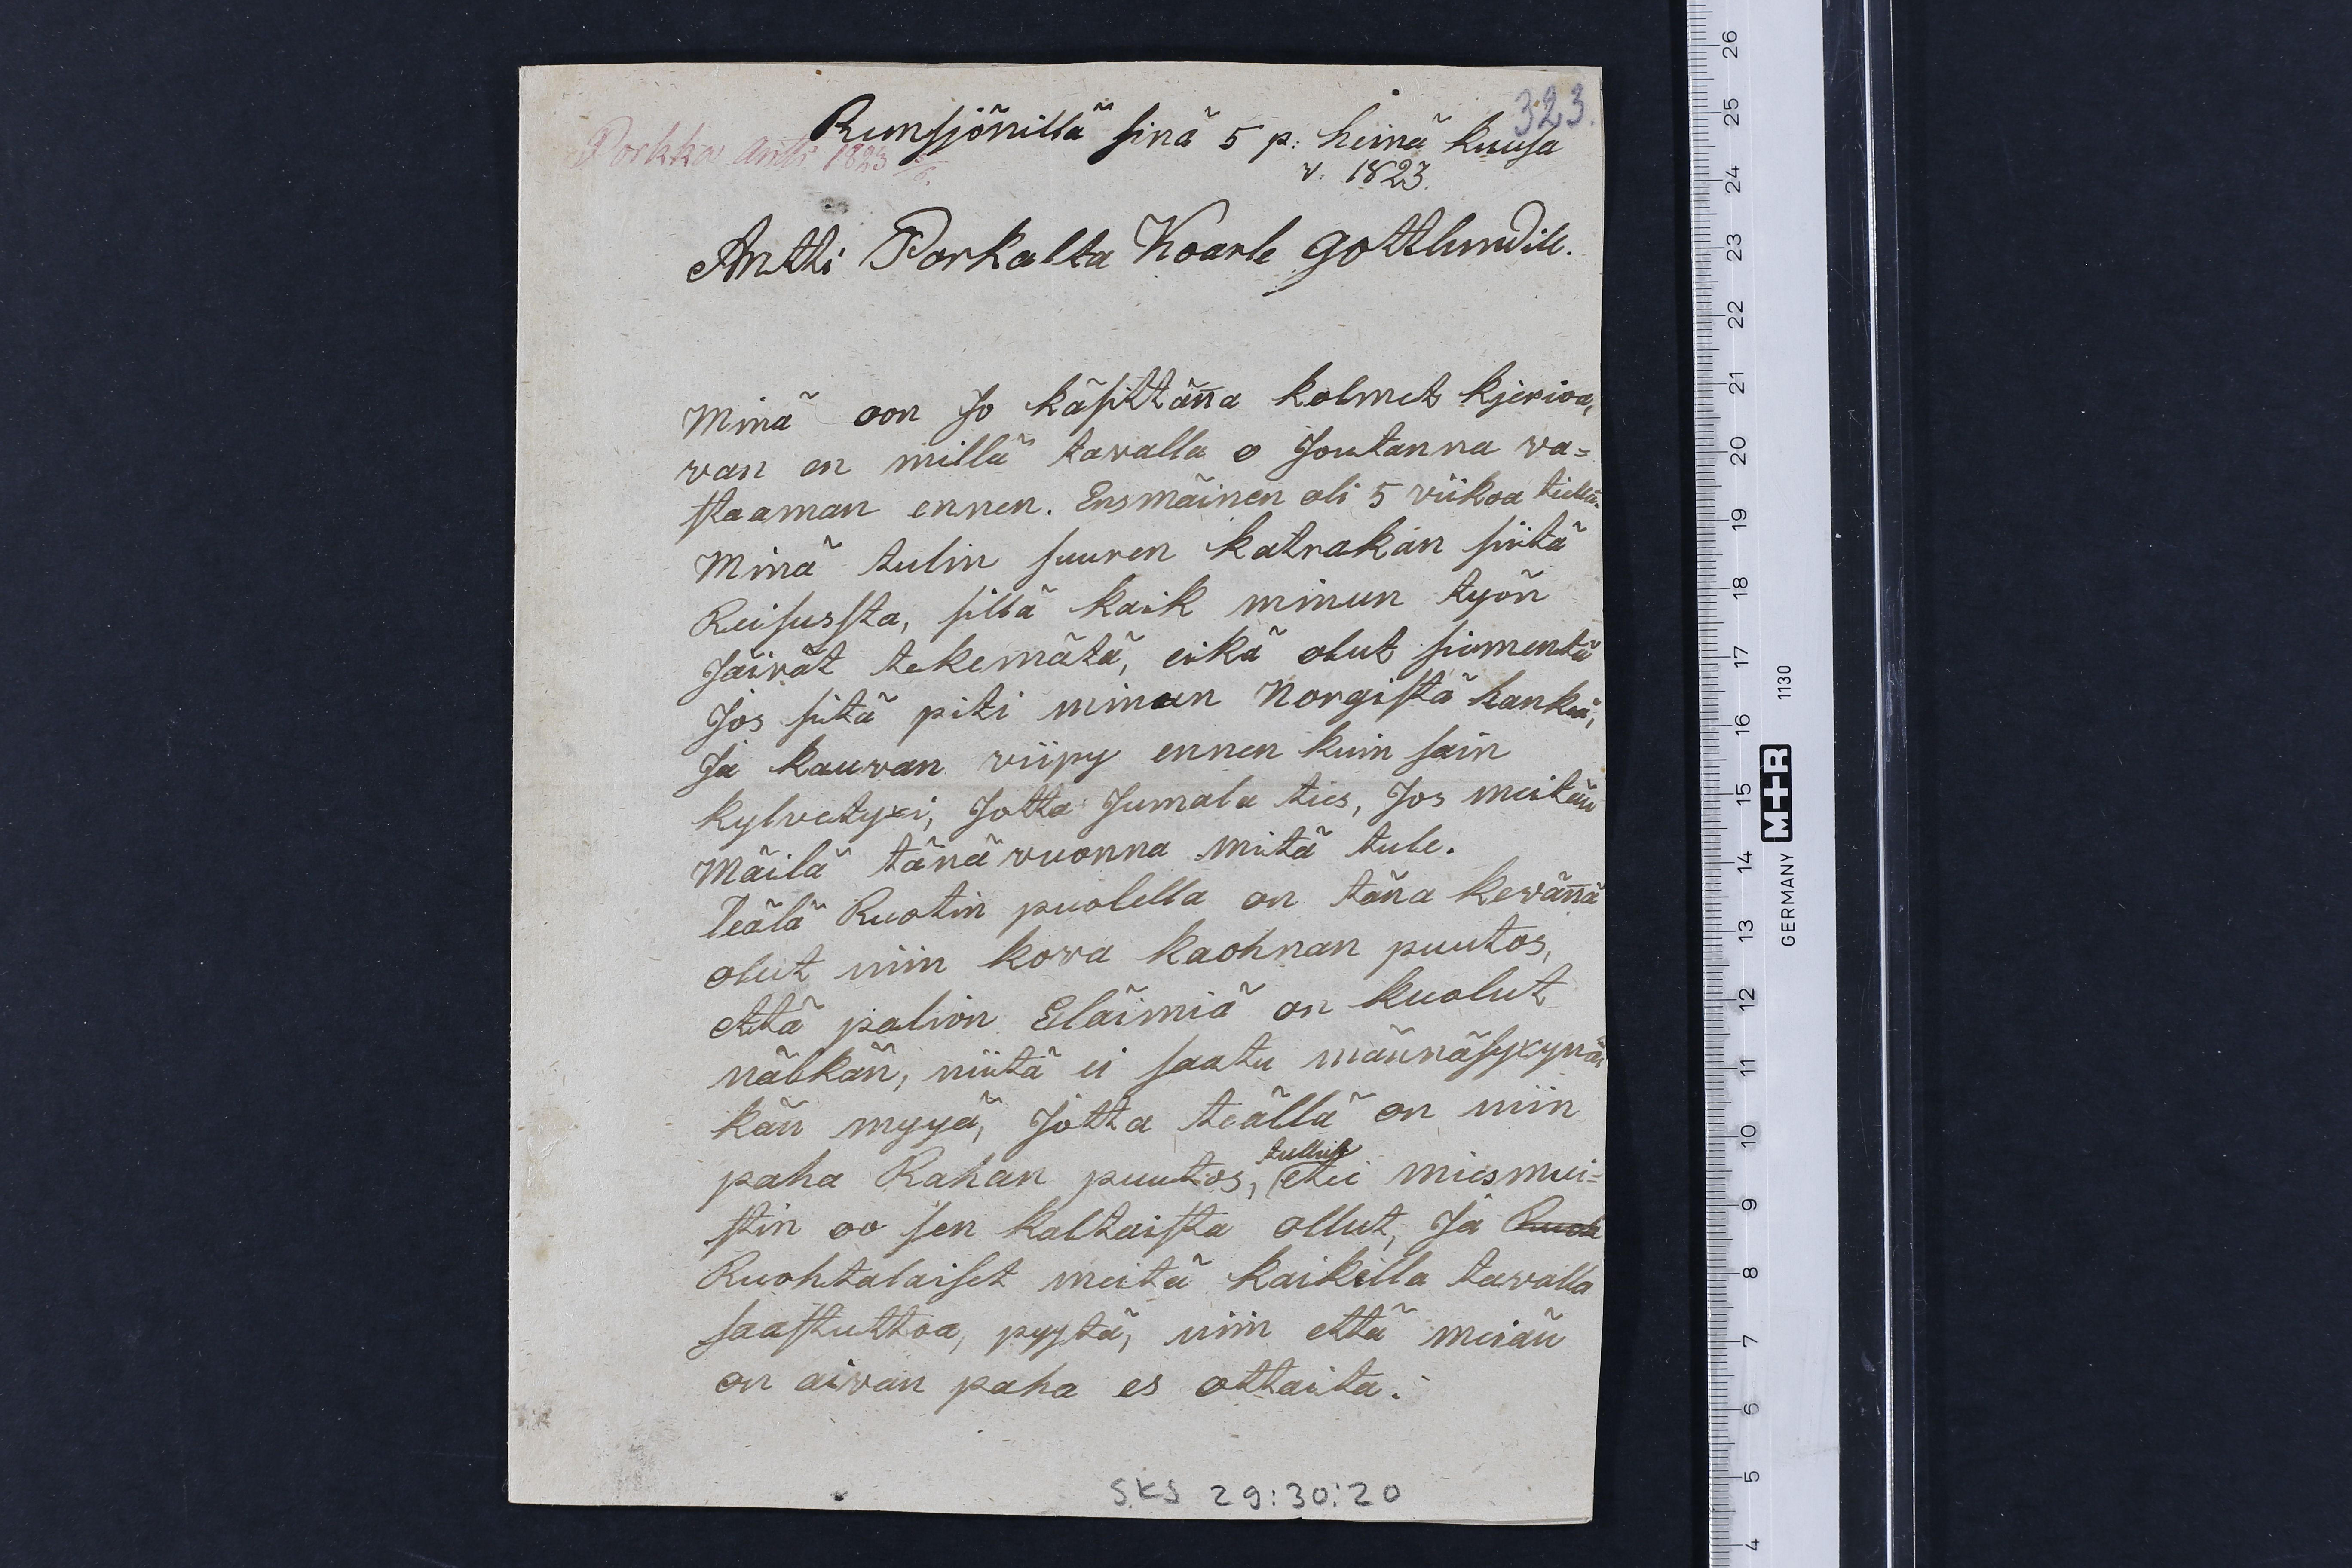 323.
Porkka Antti 1823 5/6.
Runsjönillä sinä 5 p: heinä kuusa
v: 1823.
Antti Porkalta Koarle gottlundill.
Minä oon Jo käsittänä kolmet kjerioa,
van en millä tavalla o Joutanna va=
staaman ennen. Ensmäinen oli 5 viikoa tiellä.
Minä tulin suuren katrakan siitä
Reisussta, sillä kaik minun työn
Jäivät tekemätä, eikä olut siementä
Jos sitä piti minun Norgistä hankiä,
Ja kauvan viipy ennen kuin sain
kylvetyxi, Jotta Jumala ties, Jos meitän
Mäilä tänä vuonna mitä tule.
Teälä Ruotin puolella on täna kevännä
olut niin kova kaohnan puutos,
että palion Eläimiä on kuolut
nälkän, niitä ei saatu männäsyxynä
kän myyä, Jotta teällä on niin
paha Rahan puutos, tullut ettei miesmui=
stin oo sen kaltaista ollut, Ja Ruoh
Ruohtalaiset meitä kaikella tavalla
saastuttoa, pyytä, niin että meiän
on aivan paha es ottaita.
SKS 29:30:20
26
25
24
23
22
21
20
19
18
17
16
15
14
13
12
11
10
9
8
7
6
5
4
GERMANY M+R 1130